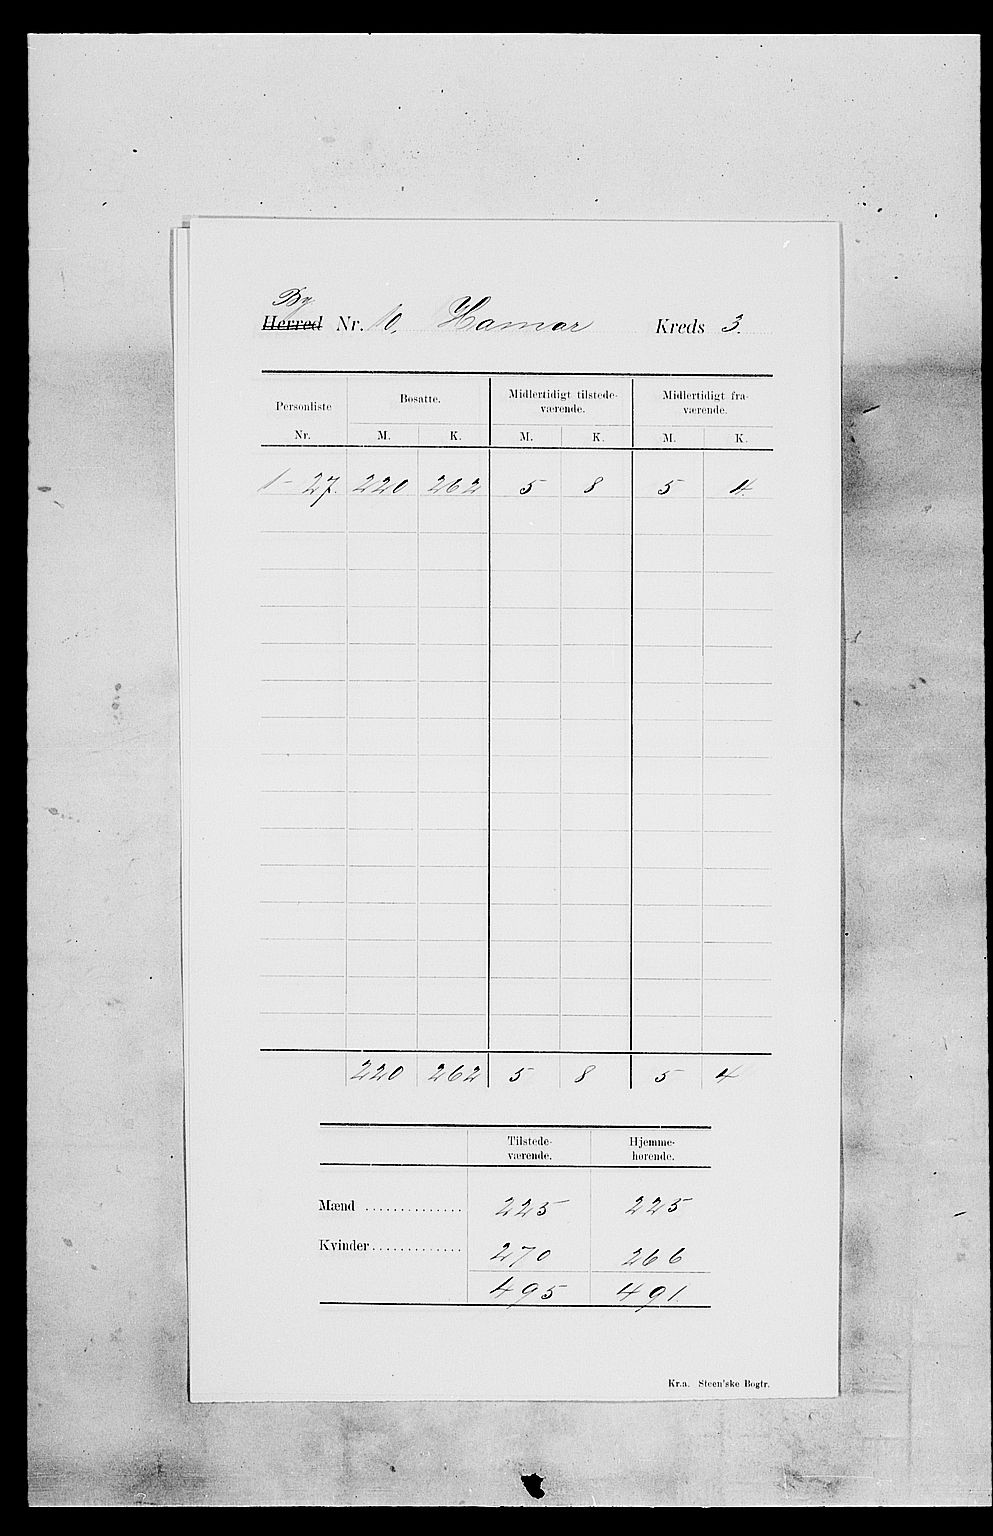 By
Herred Nr. 10. Hamar Kreds 3.
Personliste Bosatte. Midlertidigt tilstede- Midlertidigt fra-
værende. værende.
Nr. M. K. M. K. M. K.
1 - 27. 220 262 5 8 5 4
220 262 5 8 5 4
Tilstede- Hjemme-
værende. hørende.
Mænd .............. 225 225
Kvinder ............. 270 266
495 491.
Kr.a. Steen'ske Bogtr.